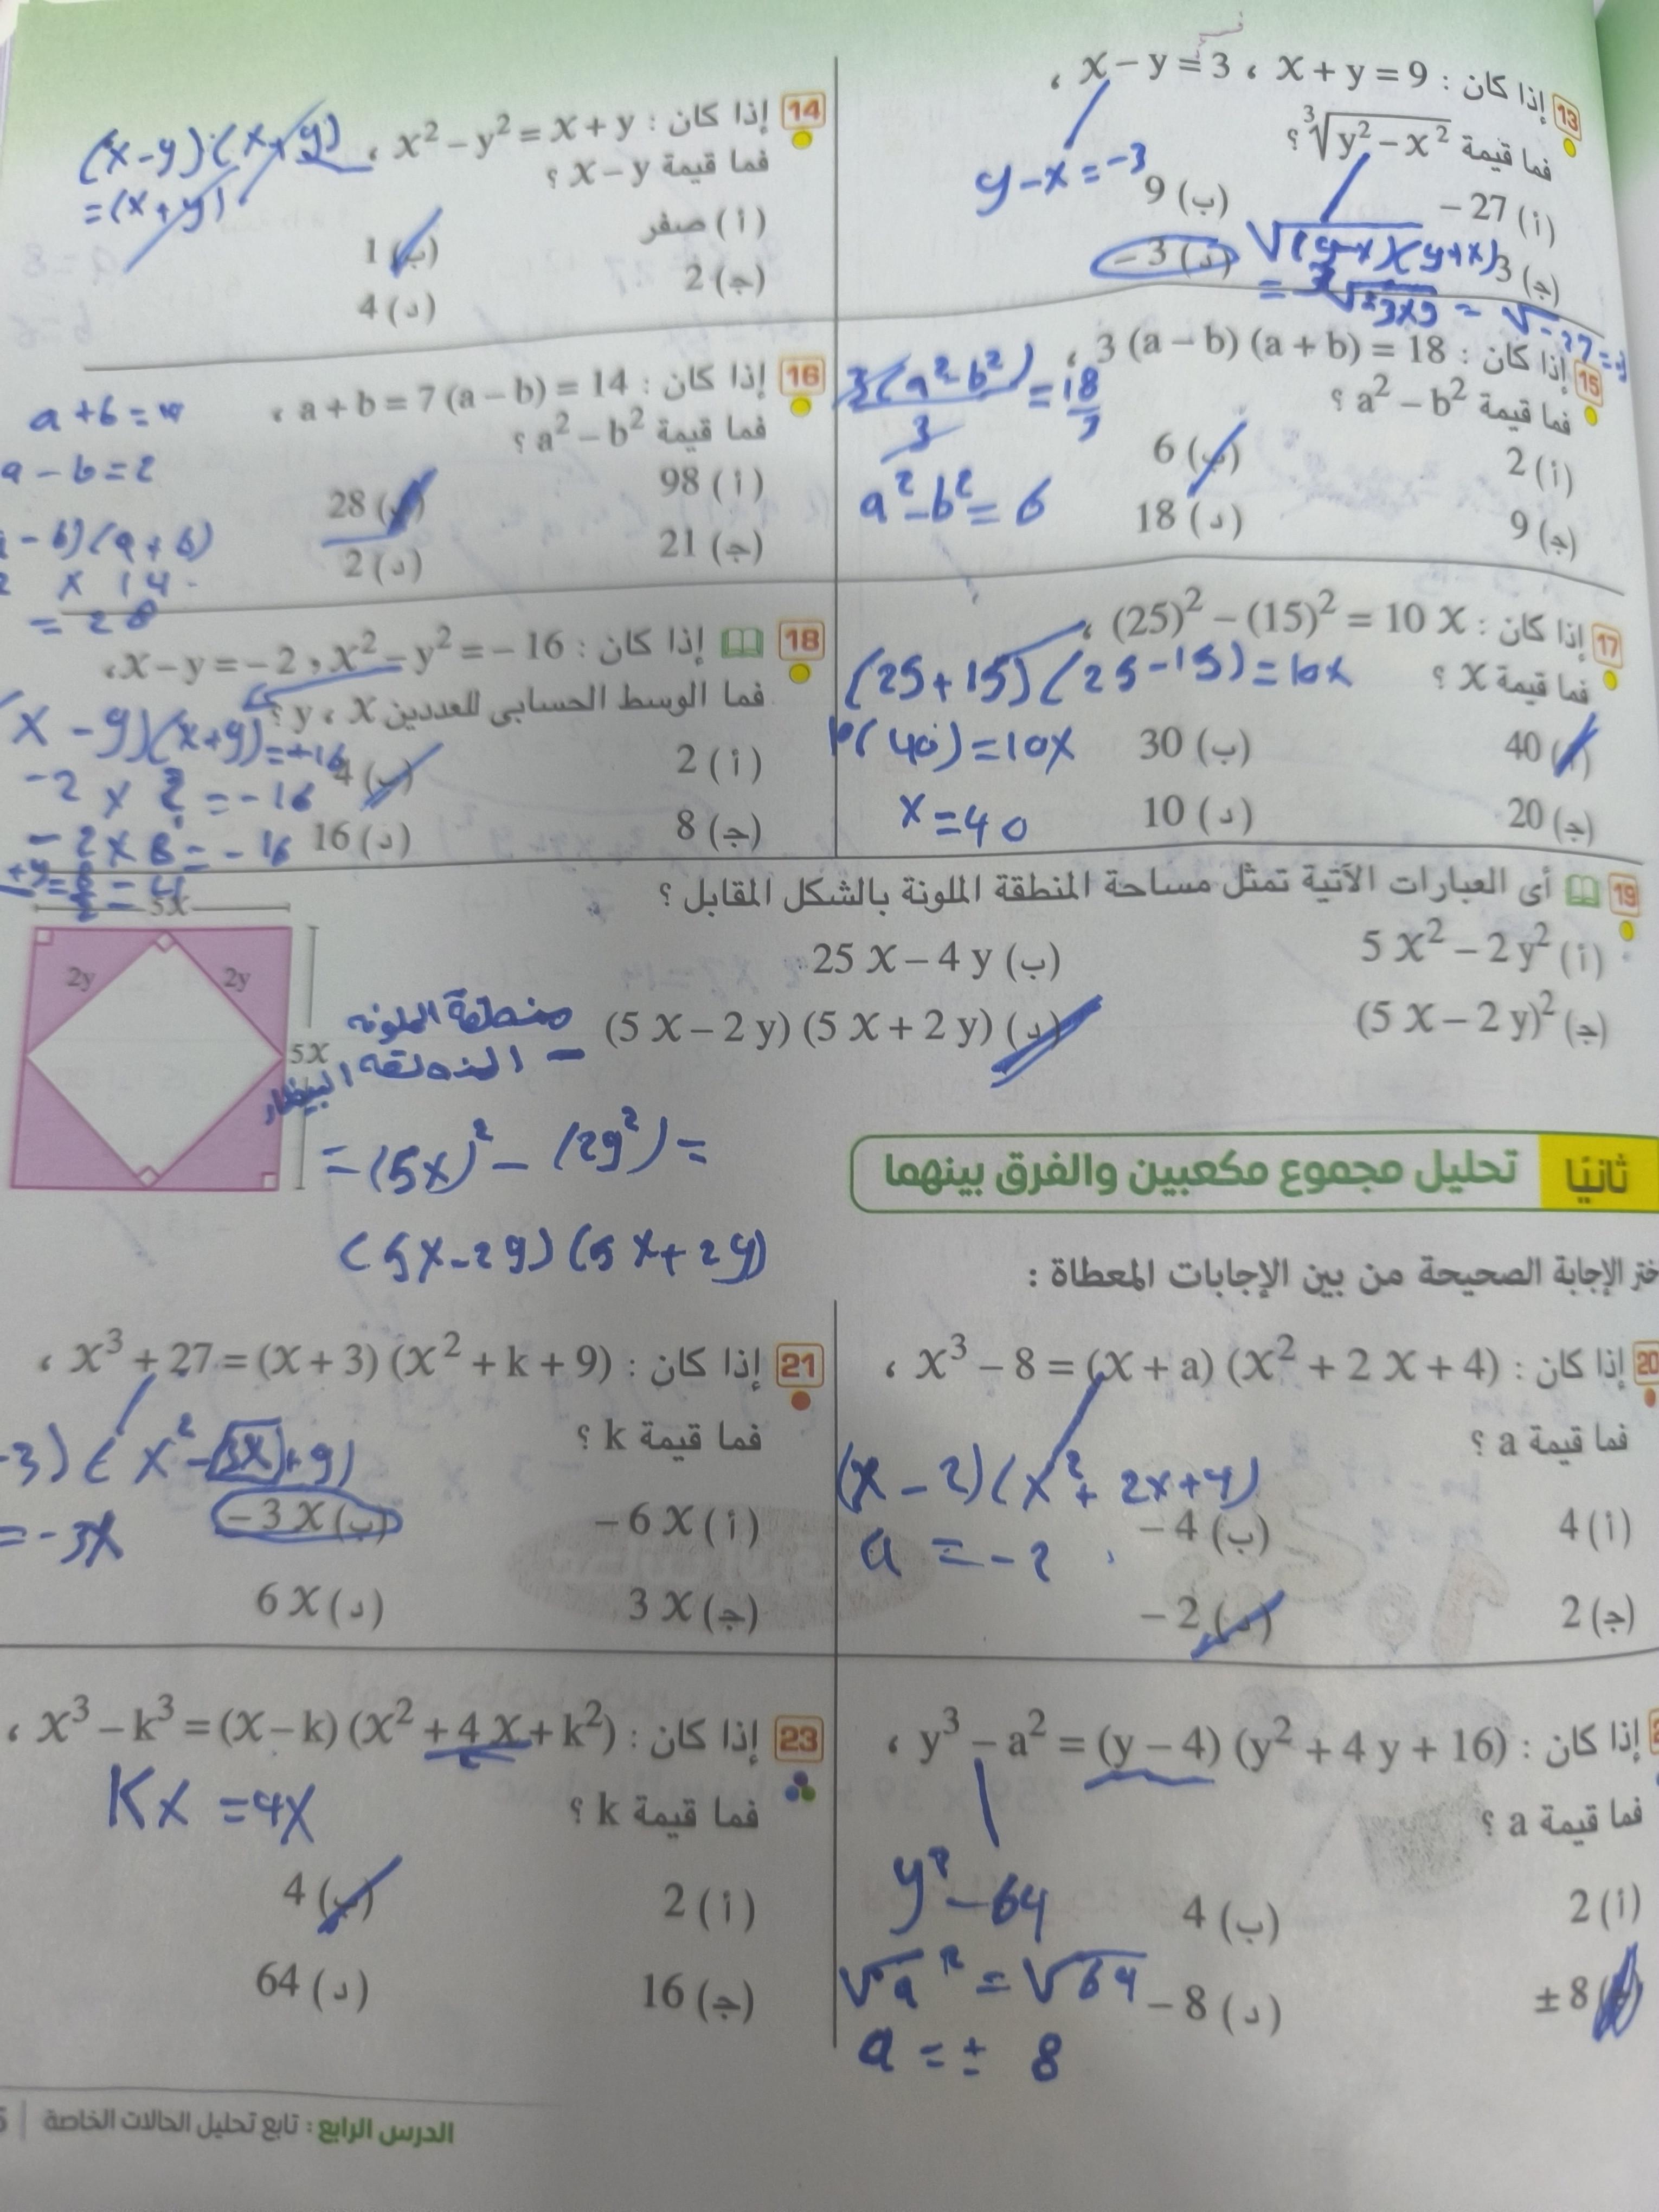 13 إذا كان : x + y = 9 ، x − y = 3 ،
فما قيمة ∛(y² − x²) ؟
(أ) −27
(ب) 9
(ج) 3
(د) −3
y − x = −3
√(y−x)(y+x)
14 إذا كان : x² − y² = x + y ،
فما قيمة x − y ؟
(أ) صفر
(ب) 1
(ج) 2
(د) 4
(x−y)(x+y)
=(x+y)
15 إذا كان : 3 (a − b) (a + b) = 18 ،
فما قيمة a² − b² ؟
(أ) 2
(ب) 6
(ج) 9
(د) 18
3(a²−b²)/3 = 18/3
a²−b²= 6
16 إذا كان : a + b = 7 (a − b) = 14 ،
فما قيمة a² − b² ؟
(أ) 98
(ب) 28
(ج) 21
(د) 2
a − b = 2
− b)(a + b)
2 x 14
= 28
17 إذا كان : (25)² − (15)² = 10 x ،
فما قيمة x ؟
(أ) 40
(ب) 30
(ج) 20
(د) 10
(25+15)(25−15)=10x
10(40)=10x
x=40
18 إذا كان : x² − y² = −16 ، x − y = −2 ،
فما الوسط الحسابى للعددين x ، y ؟
(أ) 2
(ب) 4
(ج) 8
(د) 16
x − y)(x+y)=−16
−2 x ? = −16
−2 x 8 = −16
19 أى العبارات الآتية تمثل مساحة المنطقة الملونة بالشكل المقابل ؟
(أ) 5 x² − 2 y²
(ب) 25 x − 4 y
(ج) (5 x − 2 y)²
(د) (5 x − 2 y) (5 x + 2 y)
5x
2y
2y
5x
منطقة الملونه
− المنطقه البيضاء
= (5x)² − (2y²) =
(5x−2y)(5x+2y)
ثانيًا تحليل مجموع مكعبين والفرق بينهما
ختر الإجابة الصحيحة من بين الإجابات المعطاة :
20 إذا كان : x³ − 8 = (x + a) (x² + 2 x + 4) ،
فما قيمة a ؟
(أ) 4
(ب) −4
(ج) 2
(د) −2
(x − 2)(x² + 2x+4)
a = −2
21 إذا كان : x³ + 27 = (x + 3) (x² + k + 9) ،
فما قيمة k ؟
(أ) −6 x
(ب) −3 x
(ج) 3 x
(د) 6 x
3)(x²−3x+9)
= −3x
إذا كان : y³ − a² = (y − 4) (y² + 4 y + 16) ،
فما قيمة a ؟
(أ) 2
(ب) 4
± 8
(د) −8
y³−64
√a² = √64
a = ± 8
23 إذا كان : x³ − k³ = (x − k) (x² + 4 x + k²) ،
فما قيمة k ؟
(أ) 2
(ب) 4
(ج) 16
(د) 64
Kx = 4x
الدرس الرابع : تابع تحليل الحالات الخاصة